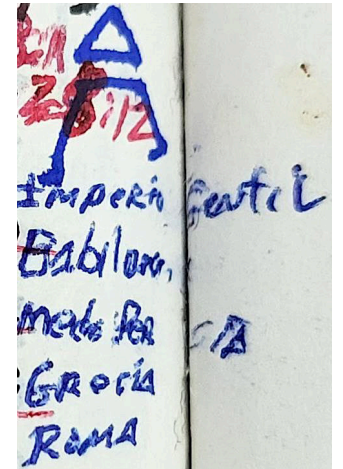 28:12
Imperio Gentil
Babilonia,
Medo Persia
Grecia
Roma